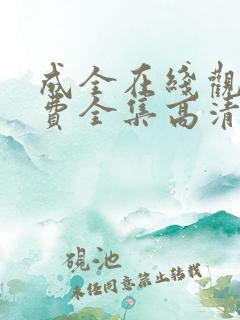 成全在綫觀
費全集高清
硯池
未經同意禁止轉載